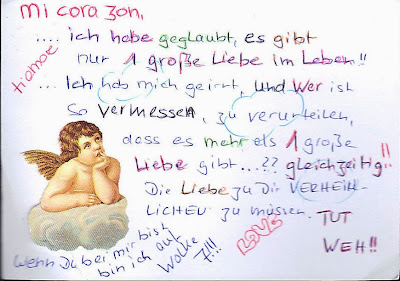 mi corazon,
.... ich habe geglaubt, es gibt
nur 1 große Liebe im Leben!!
tiamore
... Ich hab mich geirrt, und wer ist
so vermessen, zu verurteilen,
dass es mehr als 1 große
Liebe gibt...?? gleichzeitig!!
Die Liebe zu Dir VERHEIM-
LICHEN zu müssen. TUT
WEH!!
LOVE
Wenn Du bei mir bist
bin ich auf
Wolke 7!!!